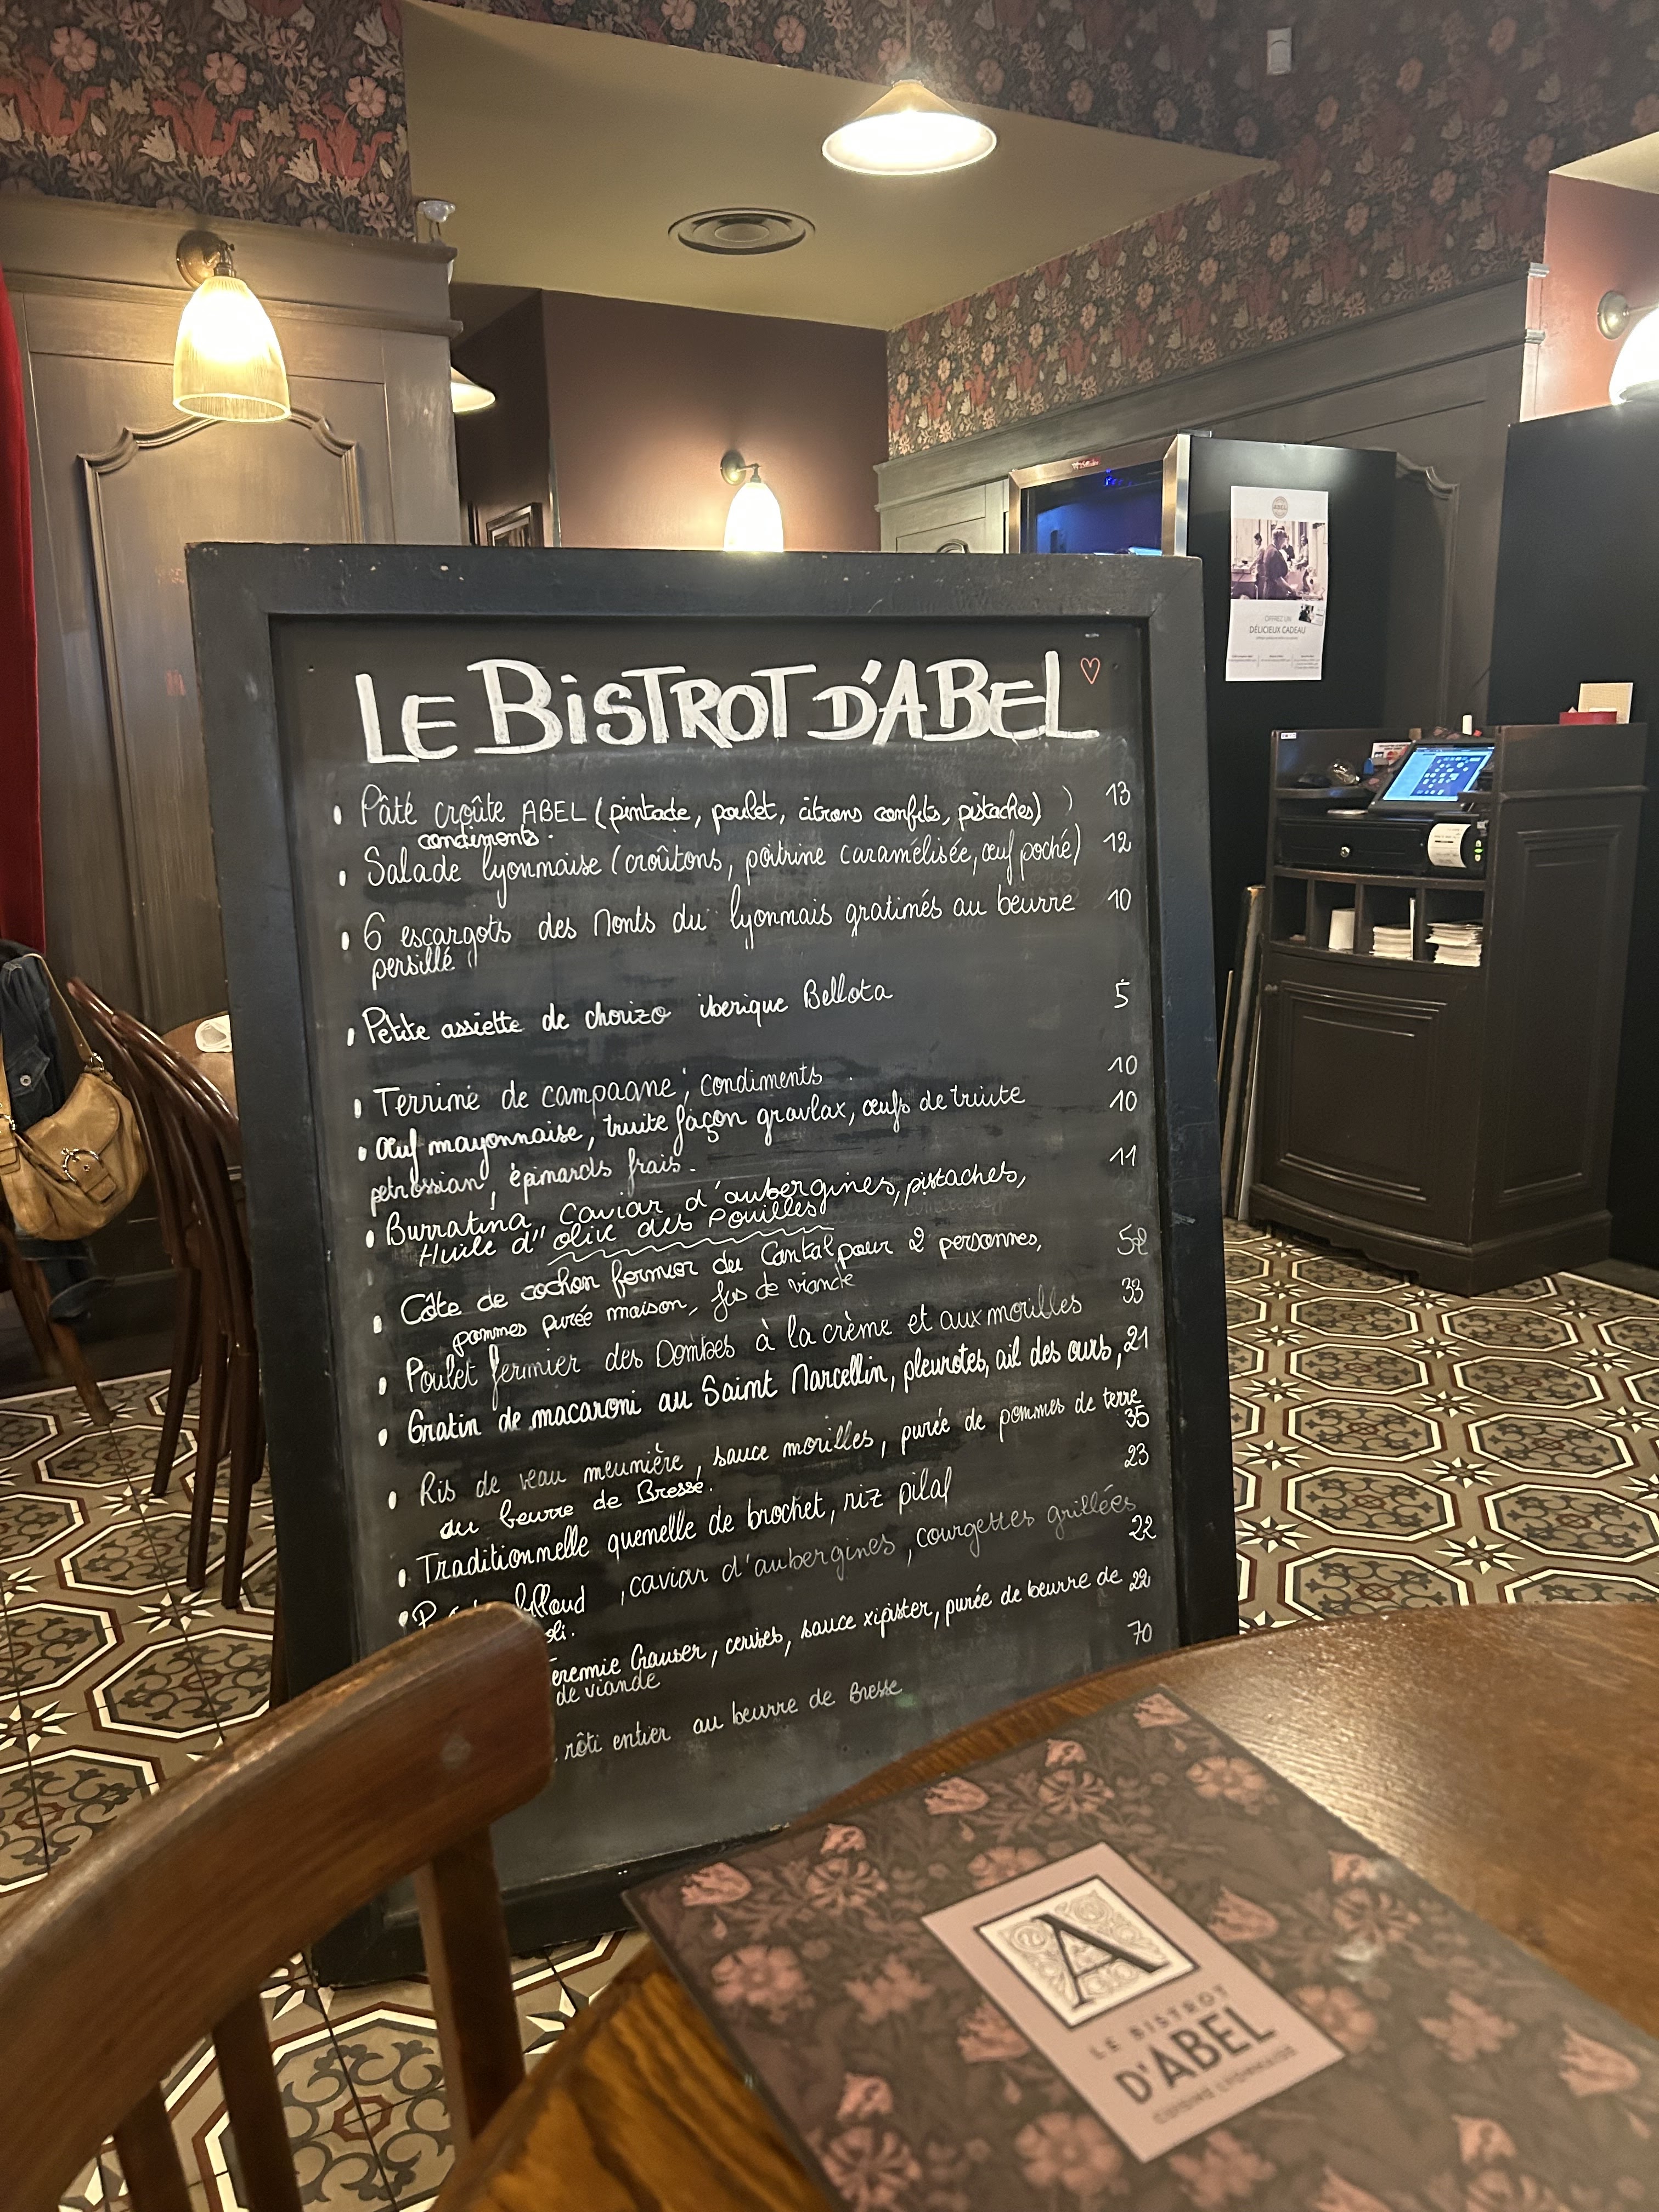 LE BISTROT D'ABEL
Pâté croûte ABEL (pintade, poulet, citrons confits, pistaches) ) 13
condiments.
Salade lyonnaise (croûtons, poitrine caramélisée, œuf poché) 12
6 escargots des Monts du lyonnais gratinés au beurre 10
persillé
Petite assiette de chorizo iberique Bellota 5
Terrine de campagne, condiments 10
Œuf mayonnaise, truite façon gravlax, œufs de truite 10
petrossian, épinards frais.
Burratina, caviar d'aubergines, pistaches, 11
Huile d'' olive des Pouilles
Côte de cochon fermier du Cantal pour 2 personnes, 52
pommes purée maison, jus de viande
Poulet fermier des Dombes à la crème et aux morilles 33
Gratin de macaroni au Saint Marcellin, pleurotes, ail des ours, 21
Ris de veau meunière, sauce morilles, purée de pommes de terre
au beurre de Bresse. 35
Traditionnelle quenelle de brochet, riz pilaf 23
, caviar d'aubergines, courgettes grillées 22
oli.
, cerises, sauce xipister, purée de beurre de 22
de viande
rôti entier au beurre de Bresse 70
OFFREZ UN
DÉLICIEUX CADEAU
A
LE BISTROT
D'ABEL
CUISINE LYONNAISE